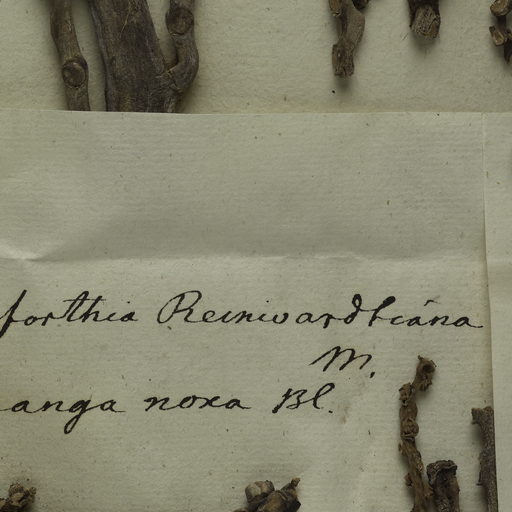 forthia Reinwardtiana
M.
anga noxa Bl.